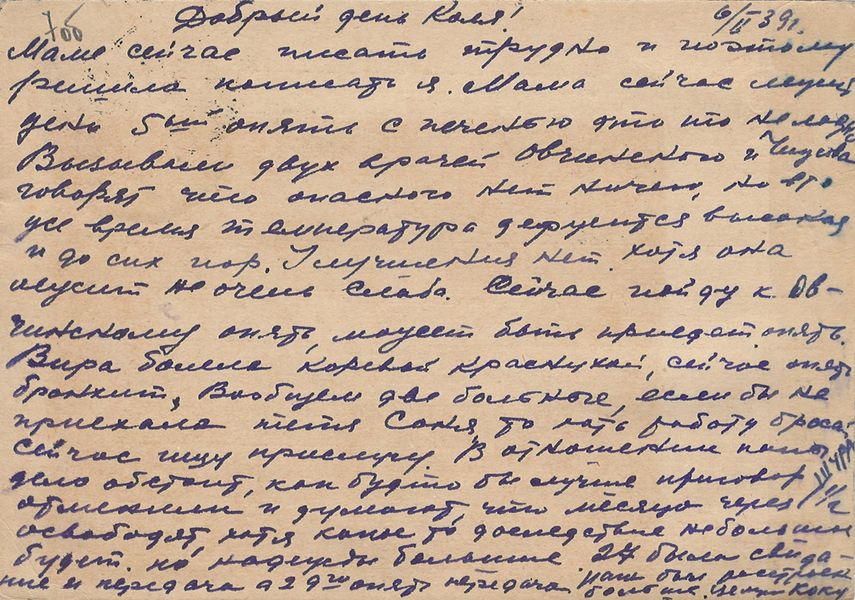 700
Добрый день Коля! 6/II 39 г.
Маме сейчас писать трудно и поэтому
решила написать я. Мама сейчас лежит
день 5ый опять с печенью что-то неладно
Вызывали двух врачей Овчинского и
говорят что опасного нет ничего, но это
уже время температура держится высокая
и до сих пор. Улучшения нет хотя она
лежит не очень слаба. Сейчас пойду к Ов-
чинскому опять, может быть приедет опять.
Вира болела коревой краснухой, сейчас опять
бронхит, Вообщем две больные, если бы не
приехала тетя Соня, то хоть работу бросай
сейчас ищу прислугу В отношении папы
дело обстоит, как будто бы лучше приговор
отменили и думают, что месяца через
освободят хотя какое то доследствие небольшое
будет. но надежды большие. 27 было свида-
ние и передача а 2 го опять передача папа был расстроен